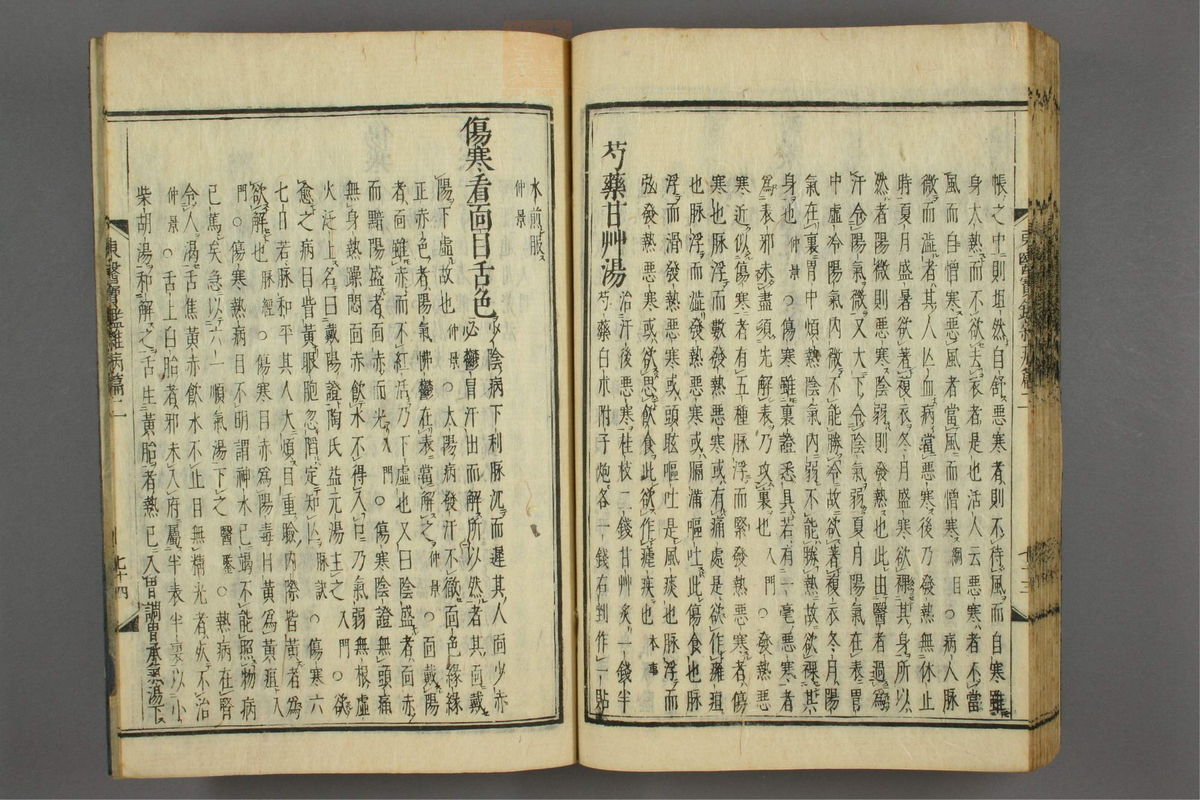 帳之中則坦然自舒惡寒者則不待風而自寒雖
身大熱而不欲去衣者是也活人云惡寒者不當
風而自憎寒惡風者當風而憎寒綱目○病人脉
微而澁者其人亾血病當惡寒後乃發熱無休止
時夏月盛暑欲著複衣冬月盛寒欲裸其身所以
然者陽微則惡寒陰弱則發熱也此由醫者過爲
汗令陽氣微又大下令陰氣弱夏月陽氣在表胃
中虛冷陽氣內微不能勝冷故欲著複衣冬月陽
氣在裏胃中煩熱陰氣內弱不能勝熱故欲裸其
身也仲景○傷寒雖裏證悉具若有一毫惡寒者
爲表邪未盡須先解表乃攻裏也入門○發熱惡
寒近似傷寒者有五種脉浮而緊發熱惡寒者傷
寒也脉浮而數發熱惡寒或有痛處是欲作癰疽
也脉浮而澁發熱惡寒或膈滿嘔吐此傷食也脉
浮而滑發熱惡寒或頭眩嘔吐是風痰也脉浮而
弦發熱惡寒或欲思飲食此欲作瘧疾也本事
芍藥甘艸湯治汗後惡寒桂枝二錢甘艸炙一錢半
芍藥白朮附子炮各一錢右剉作一貼
東醫寶鑑雜病篇二
七十三
水煎服
仲景
傷寒看面目舌色少陰病下利脉沉而遲其人面少赤
必鬱冒汗出而解所以然者其面戴
陽下虛故也仲景○太陽病發汗不徹面色緣緣
正赤色者陽氣怫鬱在表當解之仲景○面戴陽
者面雖赤而不紅活乃下虛也又曰陰盛者面赤
而黯陽盛者面赤而光入門○傷寒陰證無頭痛
無身熱躁悶面赤飲水不得入口乃氣弱無根虛
火泛上名曰戴陽證陶氏益元湯主之入門○欲
愈之病目眥黃眼胞忽陷定知亾脉訣○傷寒六
七日若脉和平其人大煩目重瞼內際皆黃者爲
欲解也脉經○傷寒目赤爲陽毒目黃爲黃疸入
門○傷寒熱病目不明謂神水已竭不能照物病
已篤矣急以六一順氣湯下之醫鑒○熱病在腎
令人渴舌焦黃赤飲水不止目無精光者死不治
仲景○舌上白胎者邪未入府屬半表半裏以小
柴胡湯和解之舌生黃胎者熱已入胃調胃承氣湯下
東醫寶鑑雜病篇二
七十四